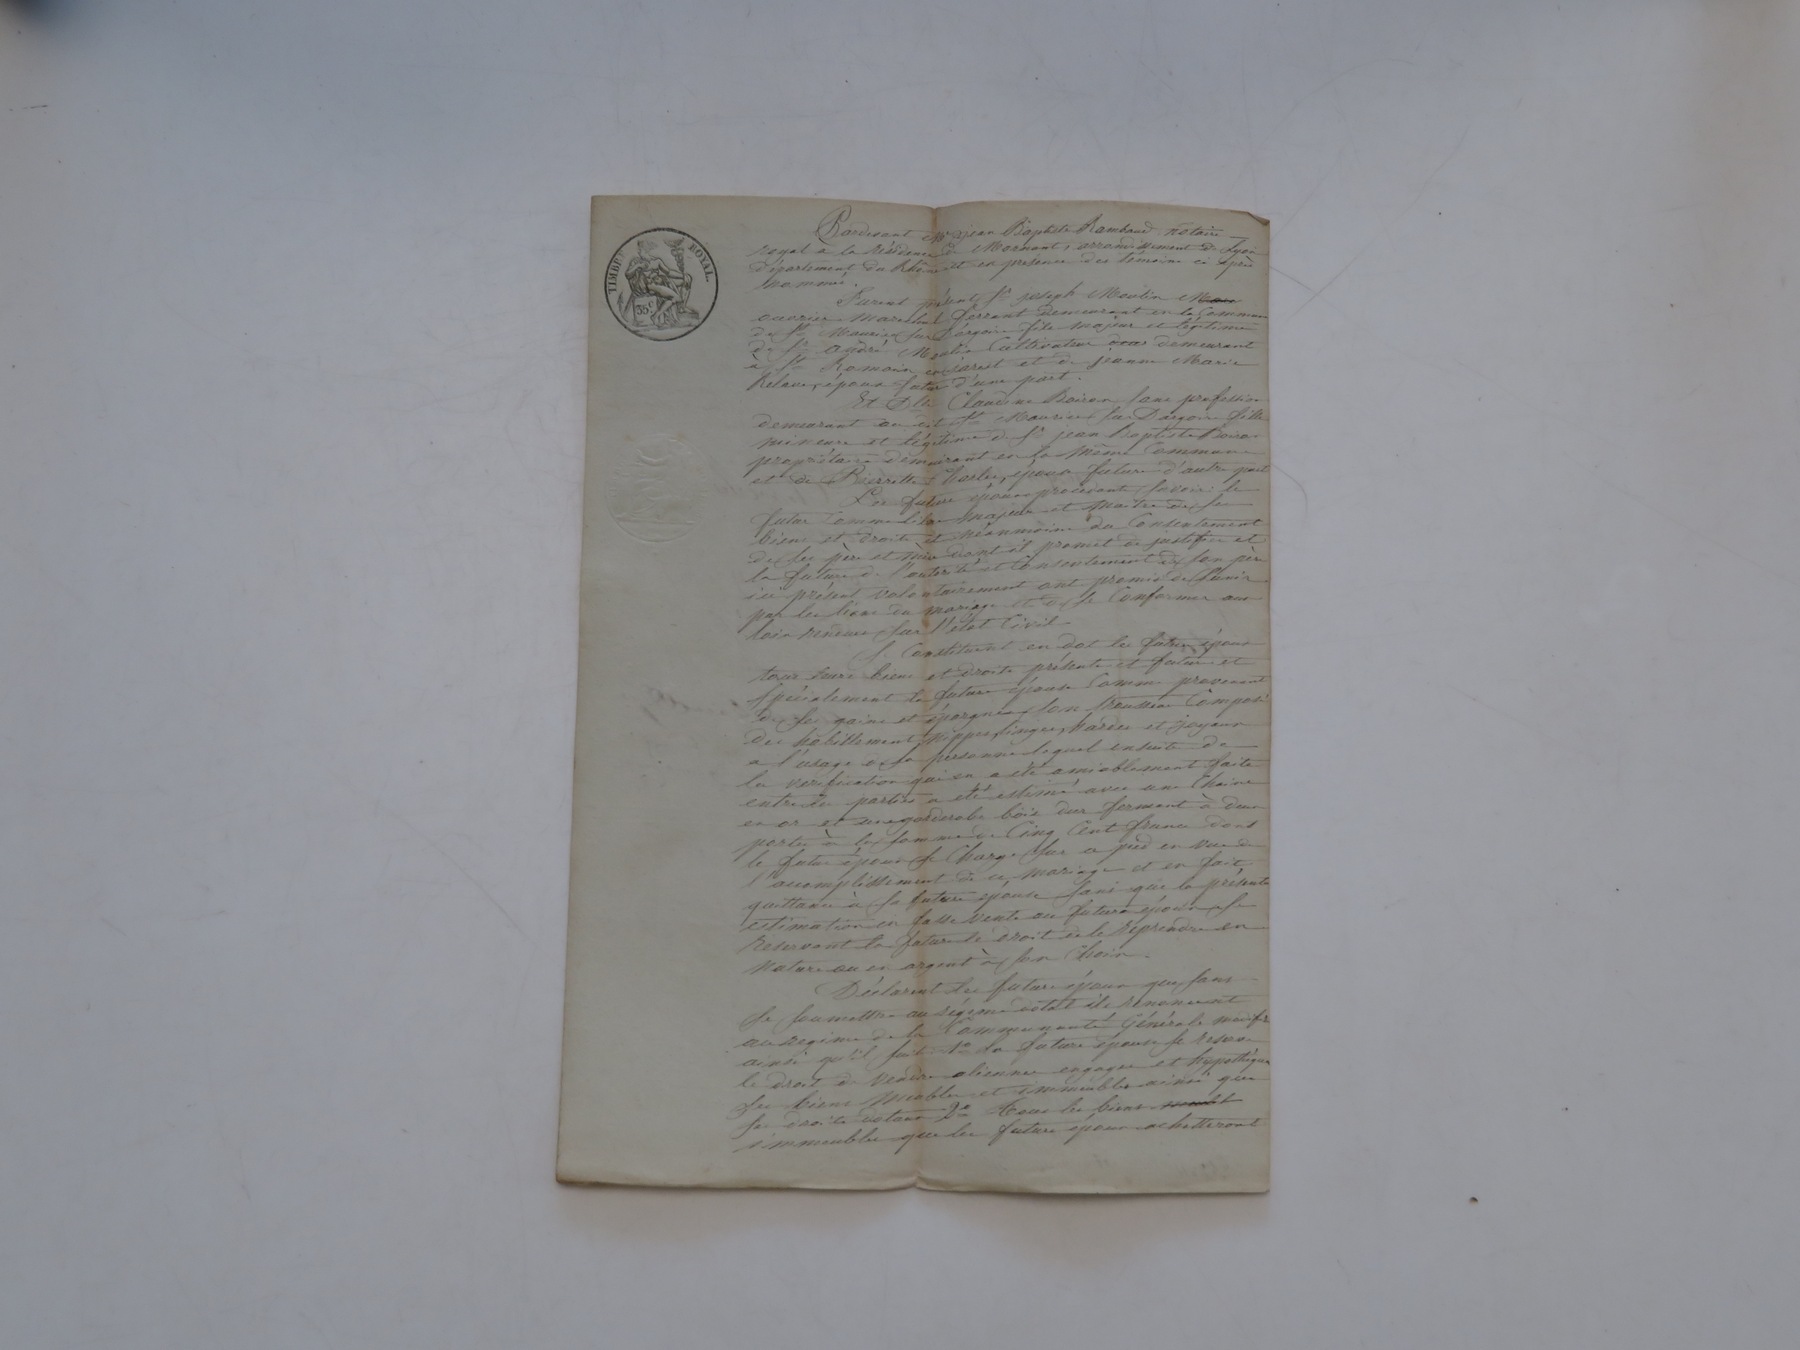 TIMBRE ROYAL
35 c
Pardevant Me jean Baptiste Rambaud notaire
royal à la résidence de Mornant, arrondissement de Lyon
département du Rhône et en présence des témoins ci après
nommés.
Furent présent Sr joseph Moulin
ouvrier Marechal ferrant demeurant en la Commune
de St Maurice sur Dargoire fils majeur et légitime
de Sr André Moulin Cultivateur demeurant
à St Romain en Jarest et de jeanne Marie
époux futur d'une part.
Et Dlle Claudine Boiron sans profession
demeurant au dit St Maurice sur Dargoire fille
mineure et légitime de Sr jean Baptiste Boiron
propriétaire demeurant en la même Commune
et de Pierrette épouse future d'autre part
Les futurs époux procédants savoir: le
futur comme libre majeur et maitre de ses
biens et droits et néanmoins du Consentement
de ses père et mère dont il promet de justifier et
la future de l'autorité et Consentement de son père
ici présent volontairement ont promis de s'unir
par les liens du mariage et de se Conformer aux
loix rendues sur l'état Civil
Se Constituent en dot les futurs époux
tous leurs biens et droits présents et futurs et
spécialement la future épouse Comme provenant
de ses gains et épargnes son trousseau Composé
des habillements, nippes, linges, hardes et joyaux
a l'usage de sa personne lequel ensuite de
la vérification qui en a été amiablement faite
entre les parties a été estimé avec une Chaine
en or et une garderobe bois dur fermant à deux
portes à la somme de Cinq Cent francs dont
le futur époux se Charge sur ce pied en vue de
l'accomplissement de ce mariage et en fait
quittance à sa future épouse sans que la présente
estimation en fasse vente au futur époux se
reservant la future le droit de le reprendre en
nature ou en argent à son Choix.
Déclarent les futurs époux que sans
se soumettre au régime dotal ils renoncent
au régime de la Communauté Générale modifié
ainsi qu'il suit 1o la future épouse se reserve
le droit de vendre aliener engager et hypothéquer
ses biens meubles et immeubles ainsi que
ses droits dotaux 2o Tous les biens
immeubles que les futurs époux achetteront